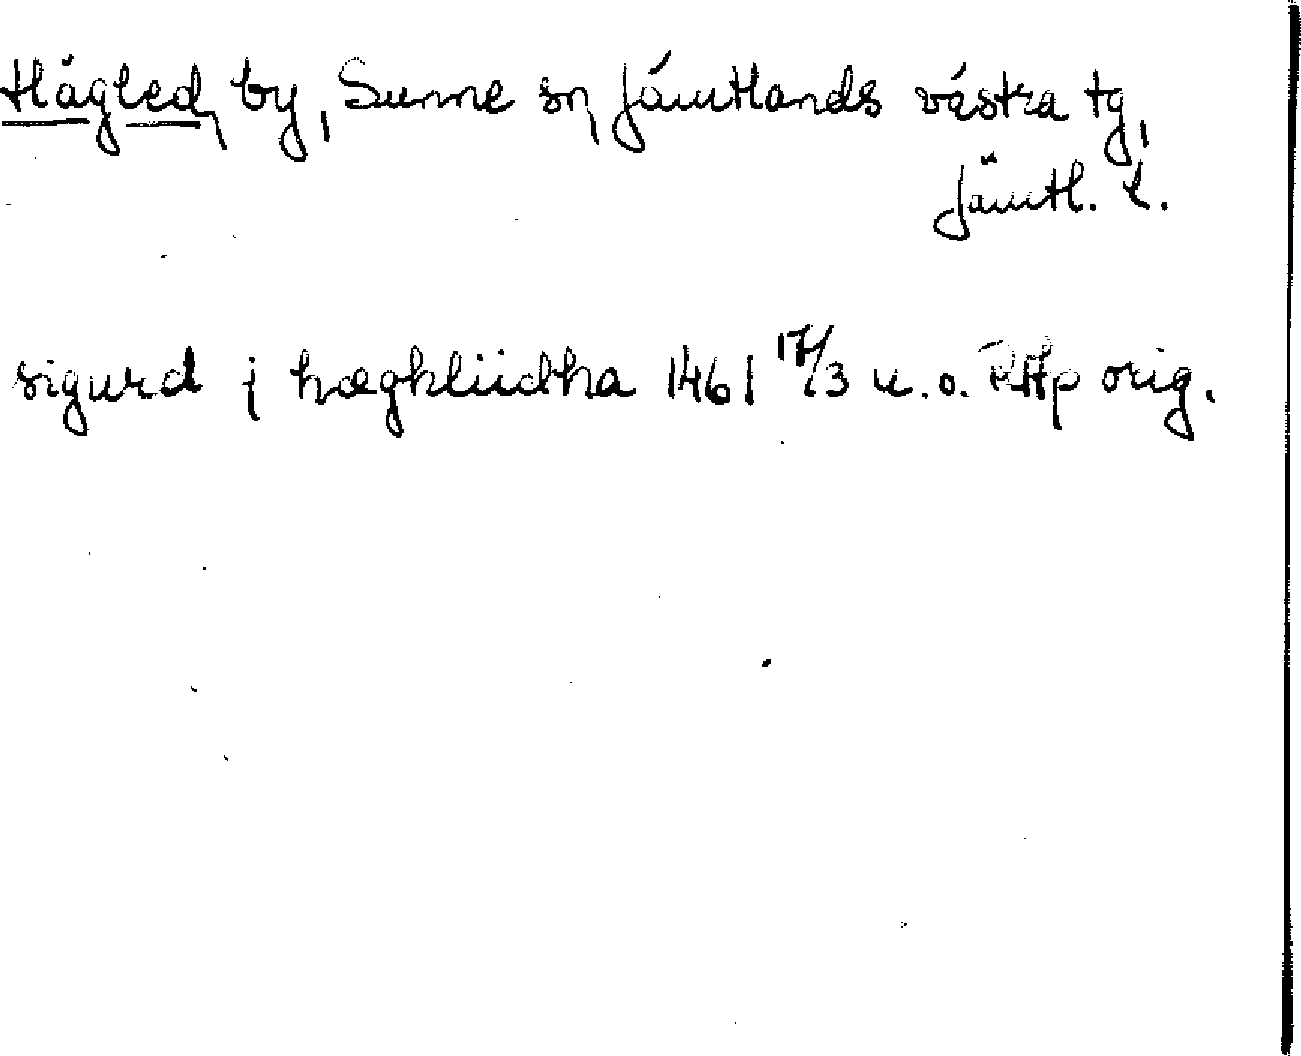 Hägled, by, Sunne sn, Jämtlands västra tg,
Jämtl. l.
sigurd j hægkliidha 1461 17/3 u.o. RAp orig.